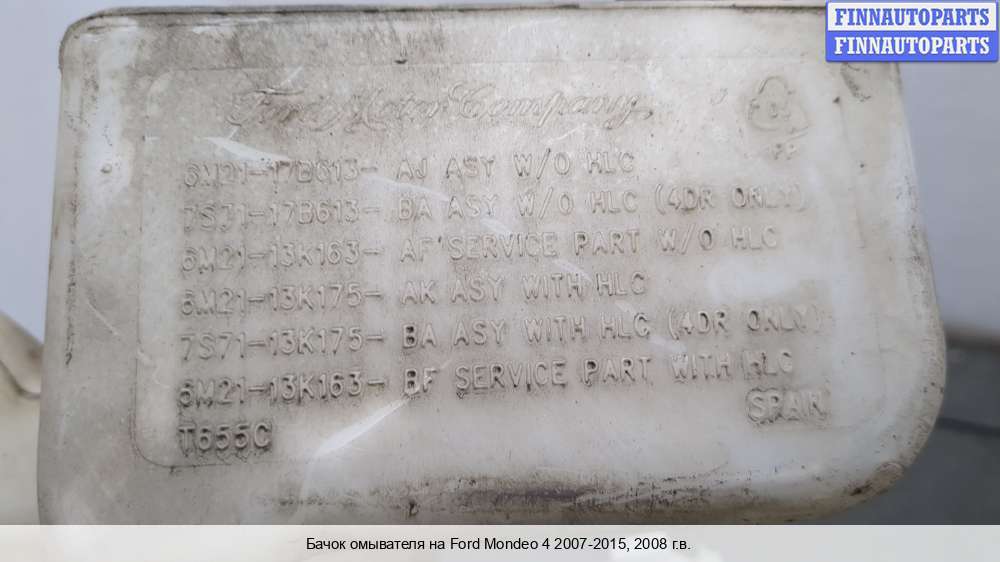 FINNAUTOPARTS
FINNAUTOPARTS
Ford Motor Company
6M21-17B613- AJ ASY W/O HLC
7S71-17B613- BA ASY W/O HLC (4DR ONLY)
6M21-13K163- AF SERVICE PART W/O HLC
6M21-13K175- AK ASY WITH HLC
7S71-13K175- BA ASY WITH HLC (4DR ONLY)
6M21-13K163- BF SERVICE PART WITH HLC
T655C
Бачок омывателя на Ford Mondeo 4 2007-2015, 2008 г.в.